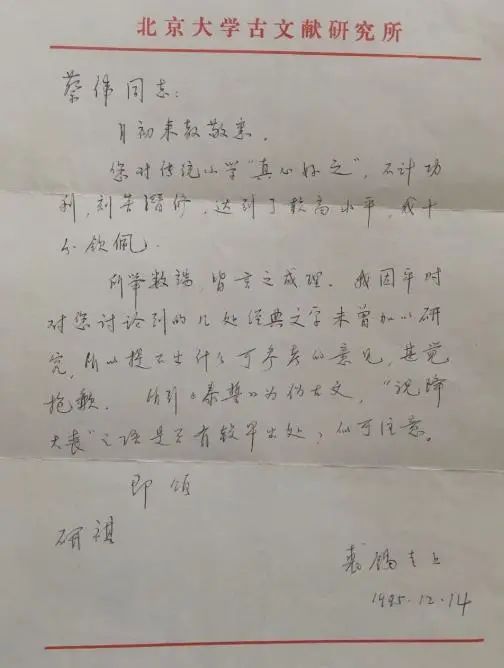 北京大学古文献研究所
蔡伟同志:
月初来教敬悉。
您对传统小学“真心好之”,不计功
利,刻苦潜修,达到了较高水平,我十
分钦佩。
所举数端,皆言之成理。我因平时
对您讨论到的几处经典文字未曾加以研
究,所以提不出什么可参考的意见,甚觉
抱歉。所引《泰誓》为伪古文,“祝降
大丧”之语是否有较早出处,似可注意。
即颂
研祺
裘锡圭上
1995.12.14